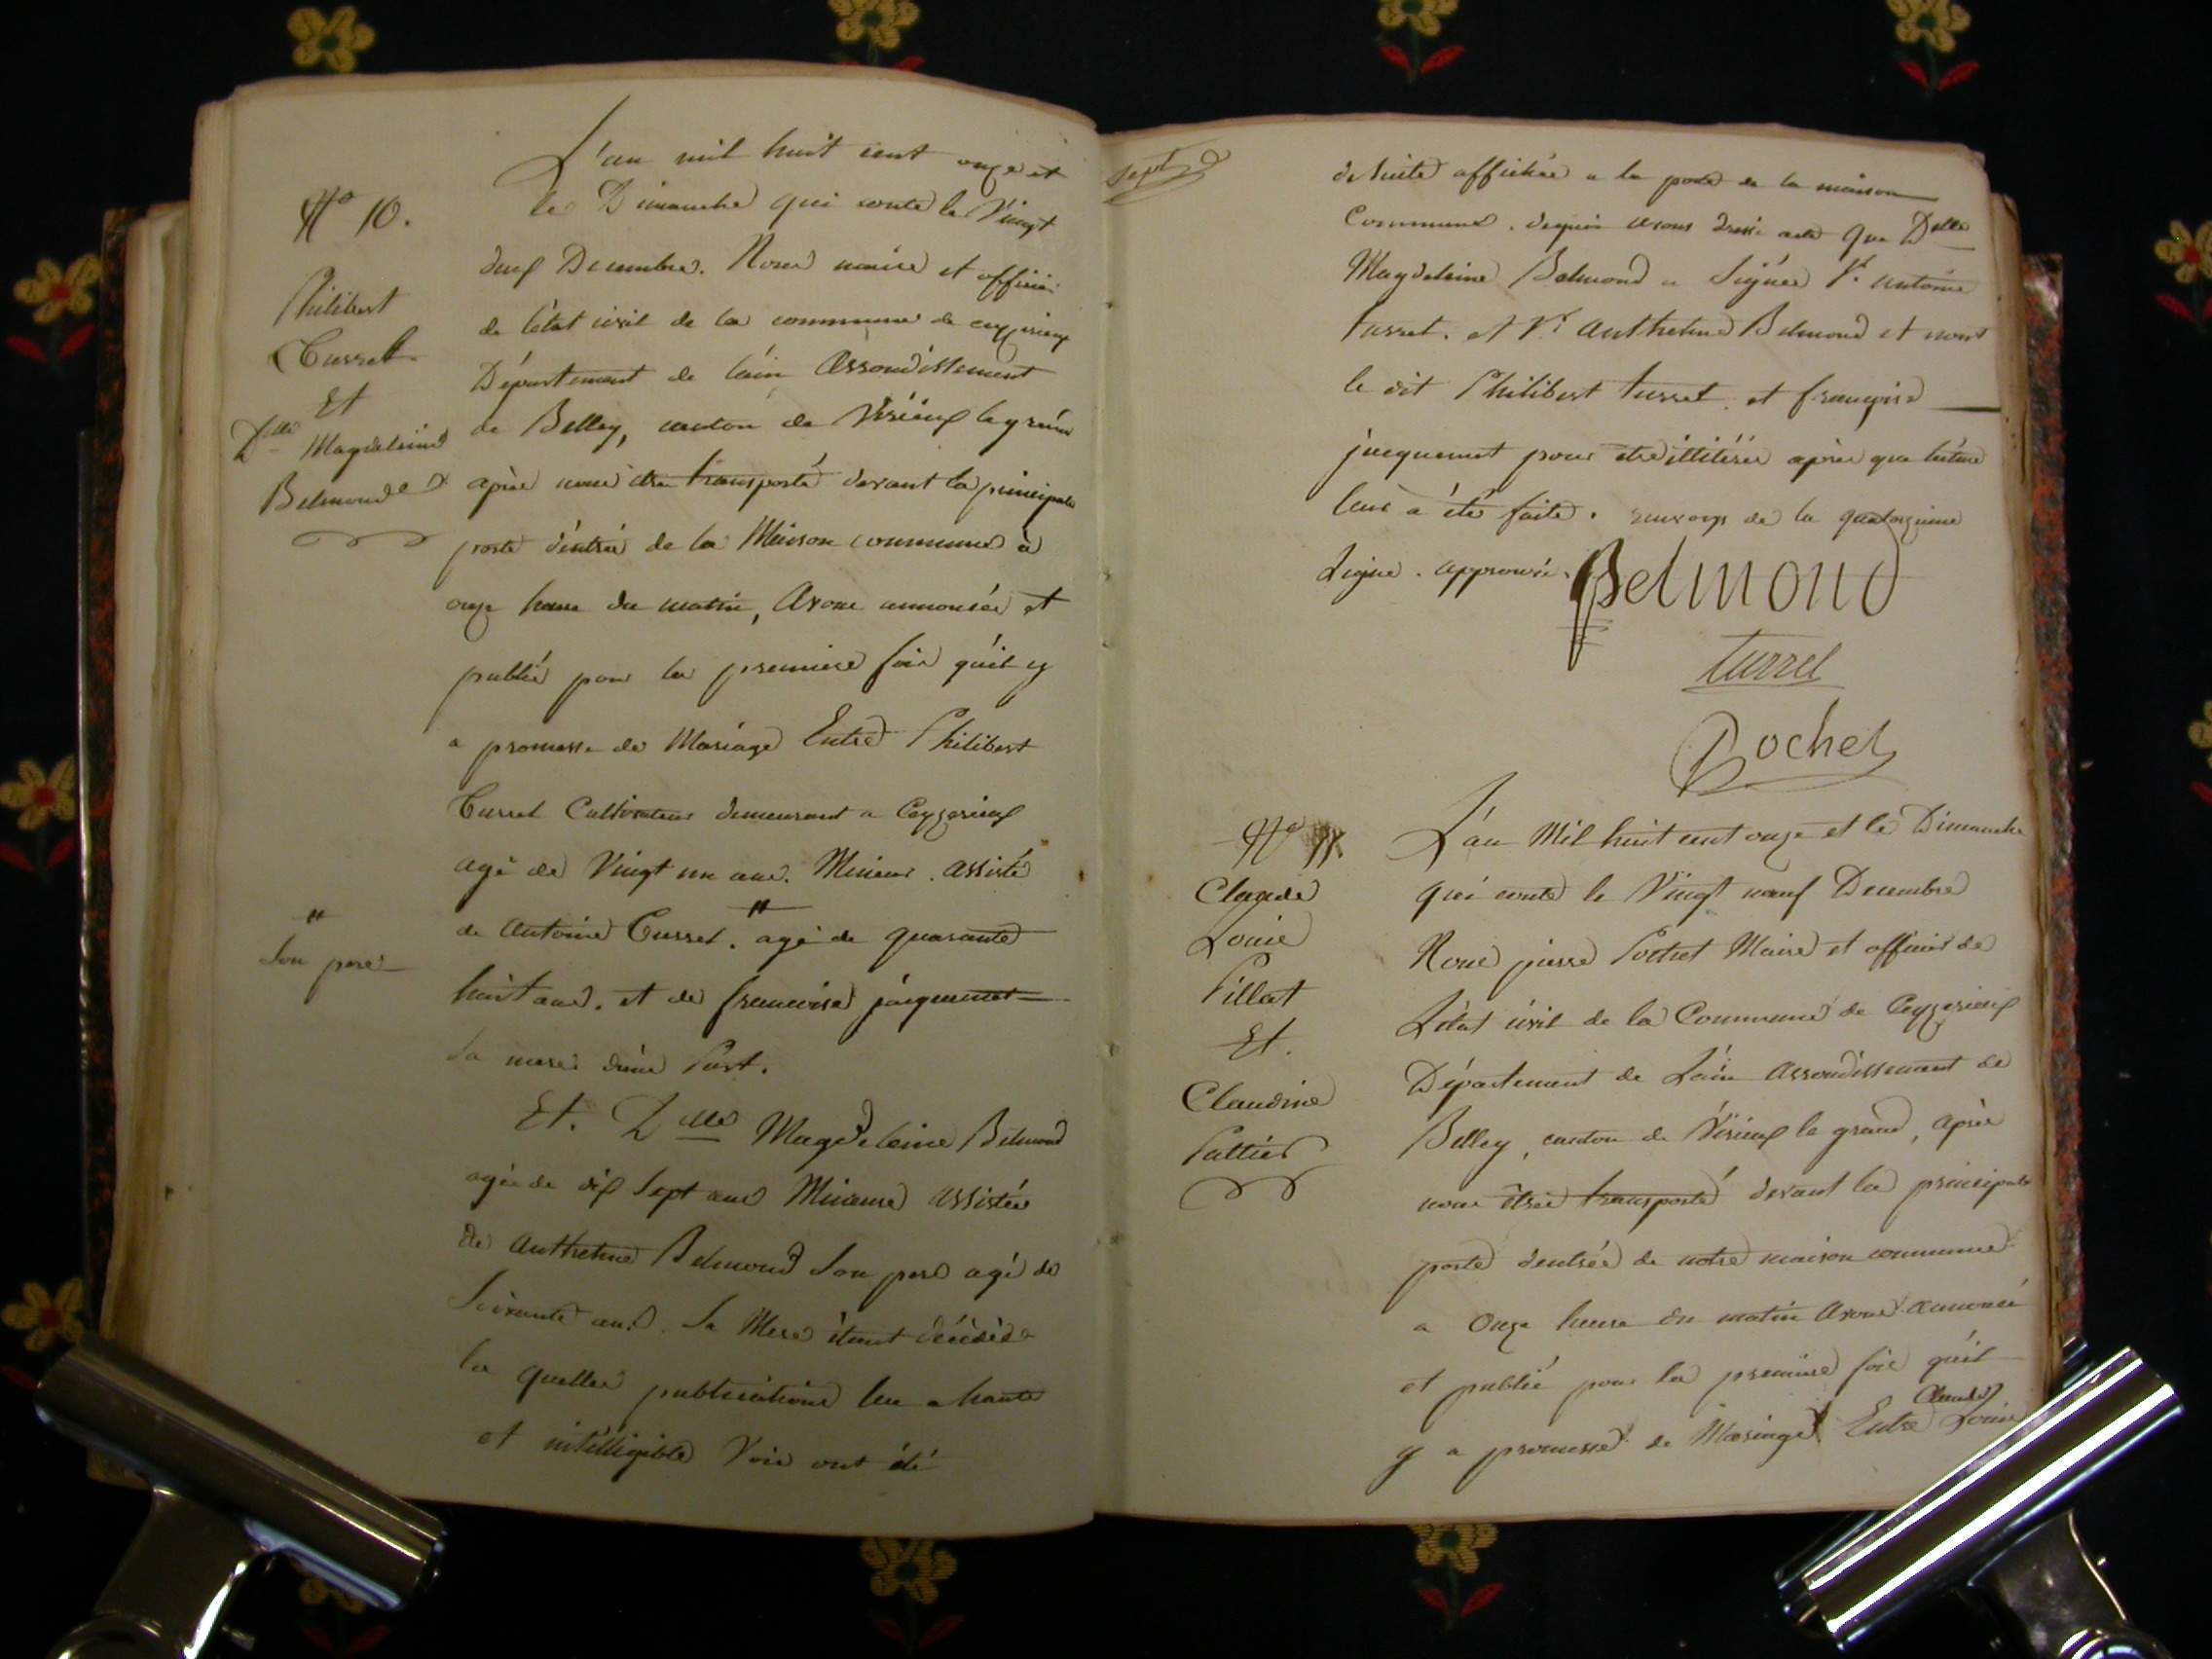 N° 10.
Philibert
Turrel
Et
Delle Magdeleine
Belmond
L'an mil huit cent onze et
le Dimanche qui conte le Vingt
deux Decembre. Nous maire et officier
de l'état civil de la commune de ceyzerieux
Département de l'ain Arrondissement
de Belley, canton de Virieux le grand
après nous etre transporté devant la principale
porte d'entrée de la Maison commune à
onze heure du matin, Avons annoncée et
publié pour la premiere fois qu'il y
a promesse de Mariage Entre Philibert
Turrel Cultivateur demeurant a Ceyzerieux
agé de Vingt un ans. Mineur. assisté
de Antoine Turrel. " agé de quarante
" Son pere
huit ans. et de francoise jacquemet
Sa mere d'une Part.
Et. Delle Magdeleine Belmond
agée de dix Sept ans Mineure assistée
de Anthelme Belmond Son pere agé de
Soixante ans. Sa Mere étant décédée
la quelle publications lu a haute
et intélligible Voix ont été
de suite affichée a la porte de la maison
Commune. dequoi avons dressé acte que Delle
Magdeleine Belmond a Signée Sr. antoine
turrel. et Sr. Anthelme Belmond et nont
le dit Philibert turrel. et françoise
jacquemet pour etre illitérés après que lecture
leur à été faite. de la quatorzieme
Ligne. approuvé.
Belmond
turrel
Pochet
N° 11.
Claude
Louis
Pillat
Et.
Claudine
Pattier
L'an Mil huit cent onze et le Dimanche
qui conte le Vingt neuf Decembre
Nous pierre Pochet Maire et officier de
L'état civil de la Commune de Ceyzerieux
Département de L'ain Arrondissement de
Belley, canton de Virieux le grand, après
nous être transporté devant la principale
porte d'entrée de notre maison commune
a Onze heure du matin Avons annoncé
et publié pour la premiere fois qu'il
y a promesse de Mariage Entre Claude Louis